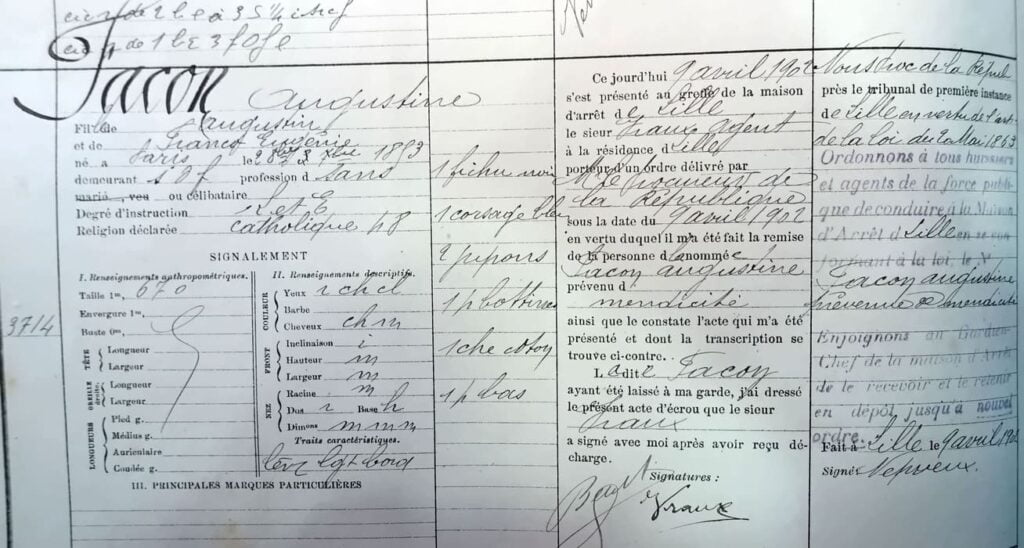 Jacon Augustine
Fille de Augustin
et de Franco Eugénie
né e à Paris le 1853
demeurant S D f profession d Sans
marié, veu ou célibataire
Degré d'instruction
Religion déclarée catholique 48
SIGNALEMENT
I. Renseignements anthropométriques.
Taille 1m, 670
Envergure 1m,
Buste 0m,
TÊTE
Longueur
Largeur
OREILLE droite
Longueur
Largeur
LONGUEURS
Pied g.
Médius g.
Auriculaire
Coudée g.
II. Renseignements descriptifs.
COULEUR
Yeux
Barbe
Cheveux ch m
FRONT
Inclinaison i
Hauteur m
Largeur m
NEZ
Racine m
Dos r Base h
Dimons m m m
Traits caractéristiques.
III. PRINCIPALES MARQUES PARTICULIÈRES
3714
1 fichu noir
1 corsage bleu
2 jupons
1 p bottines
1 che coton
1 p bas
Ce jourd'hui 9 avril 1902
s'est présenté au greffe de la maison
d'arrêt de Lille
le sieur Vraux agent
à la résidence d Lille
porteur d'un ordre délivré par
M. le Procureur de
la République
sous la date du 9 avril 1902
en vertu duquel il m'a été fait la remise
de la personne d énommée
Jacon Augustine
prévenu d
mendicité
ainsi que le constate l'acte qui m'a été
présenté et dont la transcription se
trouve ci-contre.
L adite Jacon
ayant été laissé à ma garde, j'ai dressé
le présent acte d'écrou que le sieur
Vraux
a signé avec moi après avoir reçu dé-
charge.
Signatures :
Vraux
Nous Proc de la Répub
près le tribunal de première instance
de Lille en vertu de l'art
de la loi du 20 Mai 1863
Ordonnons à tous huissiers
et agents de la force publi-
que de conduire à la Maison
d'Arrêt d Lille en se con
formant à la loi, le N
Jacon Augustine
prévenue de mendicité
Enjoignons au Gardien-
Chef de la maison d'Arrêt
de le recevoir et le retenir
en dépôt jusqu'à nouvel
ordre.
Fait à Lille le 9 avril 1902
Signé